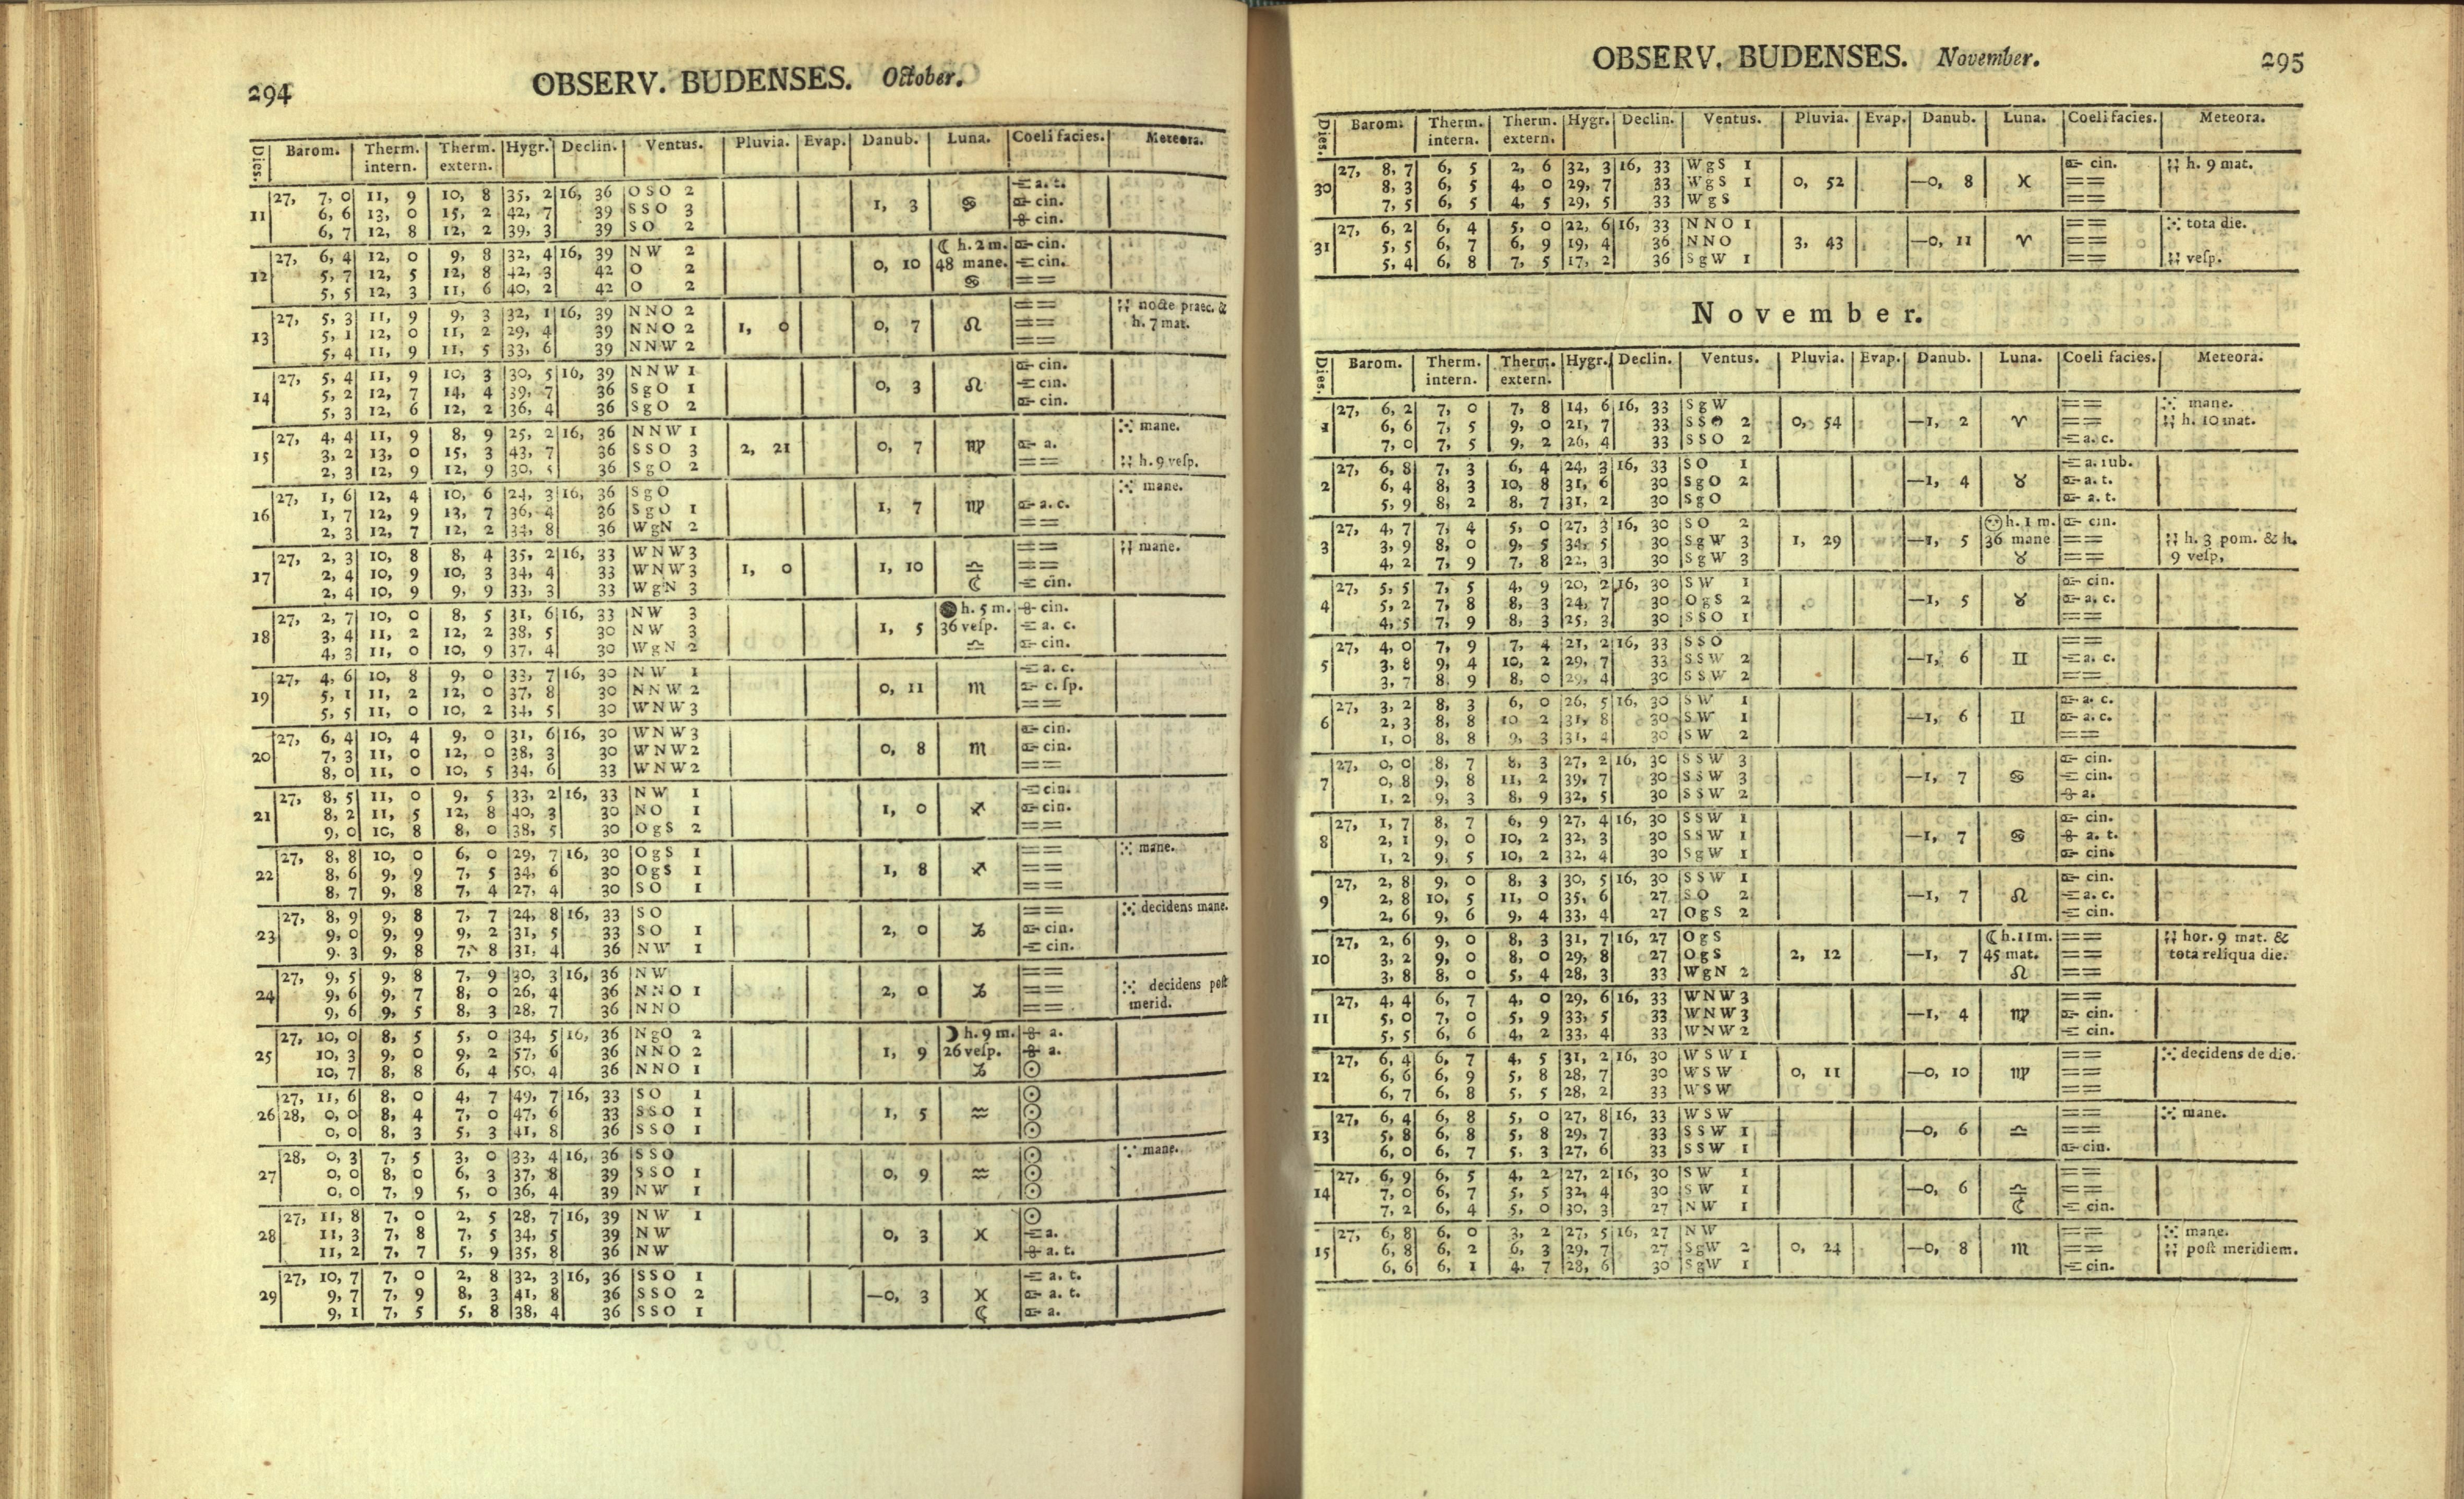 294 OBSERV. BUDENSES. October.
Dies. Barom. Therm. intern. Therm. extern. Hygr. Declin. Ventus. Pluvia. Evap. Danub. Luna. Coeli facies. Meteora.
27, 7, 0 11, 9 10, 8 35, 2 16, 36 OSO 2 a. t.
11 6, 6 13, 0 15, 2 42, 7 39 SSO 3 1, 3 ♋ cin.
6, 7 12, 8 12, 2 39, 3 39 SO 2 cin.
27, 6, 4 12, 0 9, 8 32, 4 16, 39 NW 2 ☾ h. 2 m. cin.
12 5, 7 12, 5 12, 8 42, 3 42 O 2 0, 10 48 mane. cin.
5, 5 12, 3 11, 6 40, 2 42 O 2 ♋ ==
27, 5, 3 11, 9 9, 3 32, 1 16, 39 NNO 2 == nocte praec. &
13 5, 1 12, 0 11, 2 29, 4 39 NNO 2 1, 0 0, 7 ♌ == h. 7 mat.
5, 4 11, 9 11, 5 33, 6 39 NNW 2 ==
27, 5, 4 11, 9 10, 3 30, 5 16, 39 NNW 1 cin.
14 5, 2 12, 7 14, 4 39, 7 36 SgO 1 0, 3 ♌ cin.
5, 3 12, 6 12, 2 36, 4 36 SgO 2 cin.
27, 4, 4 11, 9 8, 9 25, 2 16, 36 NNW 1 mane.
15 3, 2 13, 0 15, 3 43, 7 36 SSO 3 2, 21 0, 7 ♍ a.
2, 3 12, 9 12, 9 30, 5 36 SgO 2 == h. 9 vesp.
27, 1, 6 12, 4 10, 6 24, 3 16, 36 SgO mane.
16 1, 7 12, 9 13, 7 36, 4 36 SgO 1 1, 7 ♍ a. c.
2, 3 12, 7 12, 2 34, 8 36 WgN 2 ==
27, 2, 3 10, 8 8, 4 35, 2 16, 33 WNW 3 == mane.
17 2, 4 10, 9 10, 3 34, 4 33 WNW 3 1, 0 1, 10 ♎ ==
2, 4 10, 9 9, 9 33, 3 33 WgN 3 ☾ cin.
27, 2, 7 10, 0 8, 5 31, 6 16, 33 NW 3 ● h. 5 m. cin.
18 3, 4 11, 2 12, 2 38, 5 30 NW 3 1, 5 36 vesp. a. c.
4, 3 11, 0 10, 9 37, 4 30 WgN 2 ♎ cin.
27, 4, 6 10, 8 9, 0 33, 7 16, 30 NW 1 a. c.
19 5, 1 11, 2 12, 0 37, 8 30 NNW 2 0, 11 ♏ c. sp.
5, 5 11, 0 10, 2 34, 5 30 WNW 3 ==
27, 6, 4 10, 4 9, 0 31, 6 16, 30 WNW 3 cin.
20 7, 3 11, 0 12, 0 38, 3 30 WNW 2 0, 8 ♏ cin.
8, 0 11, 0 10, 5 34, 6 33 WNW 2 ==
27, 8, 5 11, 0 9, 5 33, 2 16, 33 NW 1 cin.
21 8, 2 11, 5 12, 8 40, 3 30 NO 1 1, 0 ♐ cin.
9, 0 10, 8 8, 0 38, 5 30 OgS 2 ==
27, 8, 8 10, 0 6, 0 29, 7 16, 30 OgS 1 == mane.
22 8, 6 9, 9 7, 5 34, 6 30 OgS 1 1, 8 ♐ ==
8, 7 9, 8 7, 4 27, 4 30 SO 1 ==
27, 8, 9 9, 8 7, 7 24, 8 16, 33 SO == decidens mane.
23 9, 0 9, 9 9, 2 31, 5 33 SO 1 2, 0 ♑ cin.
9. 3 9, 8 7, 8 31, 4 36 NW 1 cin.
27, 9, 5 9, 8 7, 9 30, 3 16, 36 NW ==
24 9, 6 9, 7 8, 0 26, 4 36 NNO 1 2, 0 ♑ == decidens post
9, 6 9, 5 8, 3 28, 7 36 NNO == merid.
27, 10, 0 8, 5 5, 0 34, 5 16, 36 NgO 2 ☽ h. 9 m. a.
25 10, 3 9, 0 9, 2 57, 6 36 NNO 2 1, 9 26 vesp. a.
10, 7 8, 8 6, 4 50, 4 36 NNO 1 ♑ ☉
27, 11, 6 8, 0 4, 7 49, 7 16, 33 SO 1 ☉
26 28, 0, 0 8, 4 7, 0 47, 6 33 SSO 1 1, 5 ♒ ☉
0, 0 8, 3 5, 3 41, 8 36 SSO 1 ☉
28, 0, 3 7, 5 3, 0 33, 4 16, 36 SSO ☉ mane.
27 0, 0 8, 0 6, 3 37, 8 39 SSO 1 0, 9 ♒ ☉
0, 0 7, 9 5, 0 36, 4 39 NW 1 ☉
27, 11, 8 7, 0 2, 5 28, 7 16, 39 NW 1 ☉
28 11, 3 7, 8 7, 5 34, 5 39 NW 0, 3 ♓ a.
11, 2 7, 7 5, 9 35, 8 36 NW a. t.
27, 10, 7 7, 0 2, 8 32, 3 16, 36 SSO 1 a. t.
29 9, 7 7, 9 8, 3 41, 8 36 SSO 2 —0, 3 ♓ a. t.
9, 1 7, 5 5, 8 38, 4 36 SSO 1 ☾ a.
OBSERV. BUDENSES. November. 295
Dies. Barom. Therm. intern. Therm. extern. Hygr. Declin. Ventus. Pluvia. Evap. Danub. Luna. Coeli facies. Meteora.
27, 8, 7 6, 5 2, 6 32, 3 16, 33 WgS 1 cin. h. 9 mat.
30 8, 3 6, 5 4, 0 29, 7 33 WgS 1 0, 52 —0, 8 ♓ ==
7, 5 6, 5 4, 5 29, 5 33 WgS ==
27, 6, 2 6, 4 5, 0 22, 6 16, 33 NNO 1 == tota die.
31 5, 5 6, 7 6, 9 19, 4 36 NNO 3, 43 —0, 11 ♈ ==
5, 4 6, 8 7, 5 17, 2 36 SgW 1 == vesp.
November.
Dies. Barom. Therm. intern. Therm. extern. Hygr. Declin. Ventus. Pluvia. Evap. Danub. Luna. Coeli facies. Meteora.
27, 6, 2 7, 0 7, 8 14, 6 16, 33 SgW == mane.
1 6, 6 7, 5 9, 0 21, 7 33 SSO 2 0, 54 —1, 2 ♈ == h. 10 mat.
7, 0 7, 5 9, 2 26, 4 33 SSO 2 a. c.
27, 6, 8 7, 3 6, 4 24, 3 16, 33 SO 1 a. rub.
2 6, 4 8, 3 10, 8 31, 6 30 SgO 2 —1, 4 ♉ a. t.
5, 9 8, 2 8, 7 31, 2 30 SgO a. t.
27, 4, 7 7, 4 5, 0 27, 3 16, 30 SO 2 h. 1 m. cin.
3 3, 9 8, 0 9, 5 34, 5 30 SgW 3 1, 29 —1, 5 36 mane == h. 3 pom. & h.
4, 2 7, 9 7, 8 22, 3 30 SgW 3 ♉ == 9 vesp,
27, 5, 5 7, 5 4, 9 20, 2 16, 30 SW 1 cin.
4 5, 2 7, 8 8, 3 24, 7 30 OgS 2 —1, 5 ♉ a. c.
4, 5 7, 9 8, 3 25, 3 30 SSO 1 ==
27, 4, 0 7, 9 7, 4 21, 2 16, 33 SSO ==
5 3, 8 9, 4 10, 2 29, 7 33 SSW 2 —1, 6 ♊ a. c.
3, 7 8. 9 8, 0 29, 4 30 SSW 2 ==
27, 3, 2 8, 3 6, 0 26, 5 16, 30 SW 1 a. c.
6 2, 3 8, 8 10 2 31, 8 30 SW 1 —1, 6 ♊ a. c.
1, 0 8, 8 9, 3 31, 4 30 SW 2 ==
27, 0, 0 8, 7 8, 3 27, 2 16, 30 SSW 3 cin.
7 0, 8 9, 8 11, 2 39, 7 30 SSW 3 —1, 7 ♋ cin.
1, 2 9, 3 8, 9 32, 5 30 SSW 2 a.
27, 1, 7 8, 7 6, 9 27, 4 16, 30 SSW 1 cin.
8 2, 1 9, 0 10, 2 32, 3 30 SSW 1 —1, 7 ♋ a. t.
1, 2 9, 5 10, 2 32, 4 30 SgW 1 cin.
27, 2, 8 9, 0 8, 3 30, 5 16, 30 SSW 1 cin.
9 2, 8 10, 5 11, 0 35, 6 27 SO 2 —1, 7 ♌ a. c.
2, 6 9, 6 9, 4 33, 4 27 OgS 2 cin.
27, 2, 6 9, 0 8, 3 31, 7 16, 27 OgS ☾ h. 11 m. == hor. 9 mat. &
10 3, 2 9, 0 8, 0 29, 8 27 OgS 2, 12 —1, 7 45 mat. == tota reliqua die.
3, 8 8, 0 5, 4 28, 3 33 WgN 2 ♌ ==
27, 4, 4 6, 7 4, 0 29, 6 16, 33 WNW 3 ==
11 5, 0 7, 0 5, 9 33, 5 33 WNW 3 —1, 4 ♍ cin.
5, 5 6, 6 4, 2 33, 4 33 WNW 2 cin.
27, 6, 4 6, 7 4, 5 31, 2 16, 30 WSW 1 == decidens de die.
12 6, 6 6, 9 5, 8 28, 7 30 WSW 0, 11 —0, 10 ♍ ==
6, 7 6, 8 5, 5 28, 2 33 WSW ==
27, 6, 4 6, 8 5, 0 27, 8 16, 33 WSW == mane.
13 5, 8 6, 8 5, 8 29, 7 33 SSW 1 —0, 6 ♎ ==
6, 0 6, 7 5, 3 27, 6 33 SSW 1 cin.
27, 6, 9 6, 5 4, 2 27, 2 16, 30 SW 1 ==
14 7, 0 6, 7 5, 5 32, 4 30 SW 1 —0, 6 ♎ ==
7, 2 6, 4 5, 0 30, 3 27 NW 1 ☾ cin.
27, 6, 8 6, 0 3, 2 27, 5 16, 27 NW == mane.
15 6, 8 6, 2 6, 3 29, 7 27 SgW 2 0, 24 —0, 8 ♏ == post meridiem.
6, 6 6, 1 4, 7 28, 6 30 SgW 1 cin.